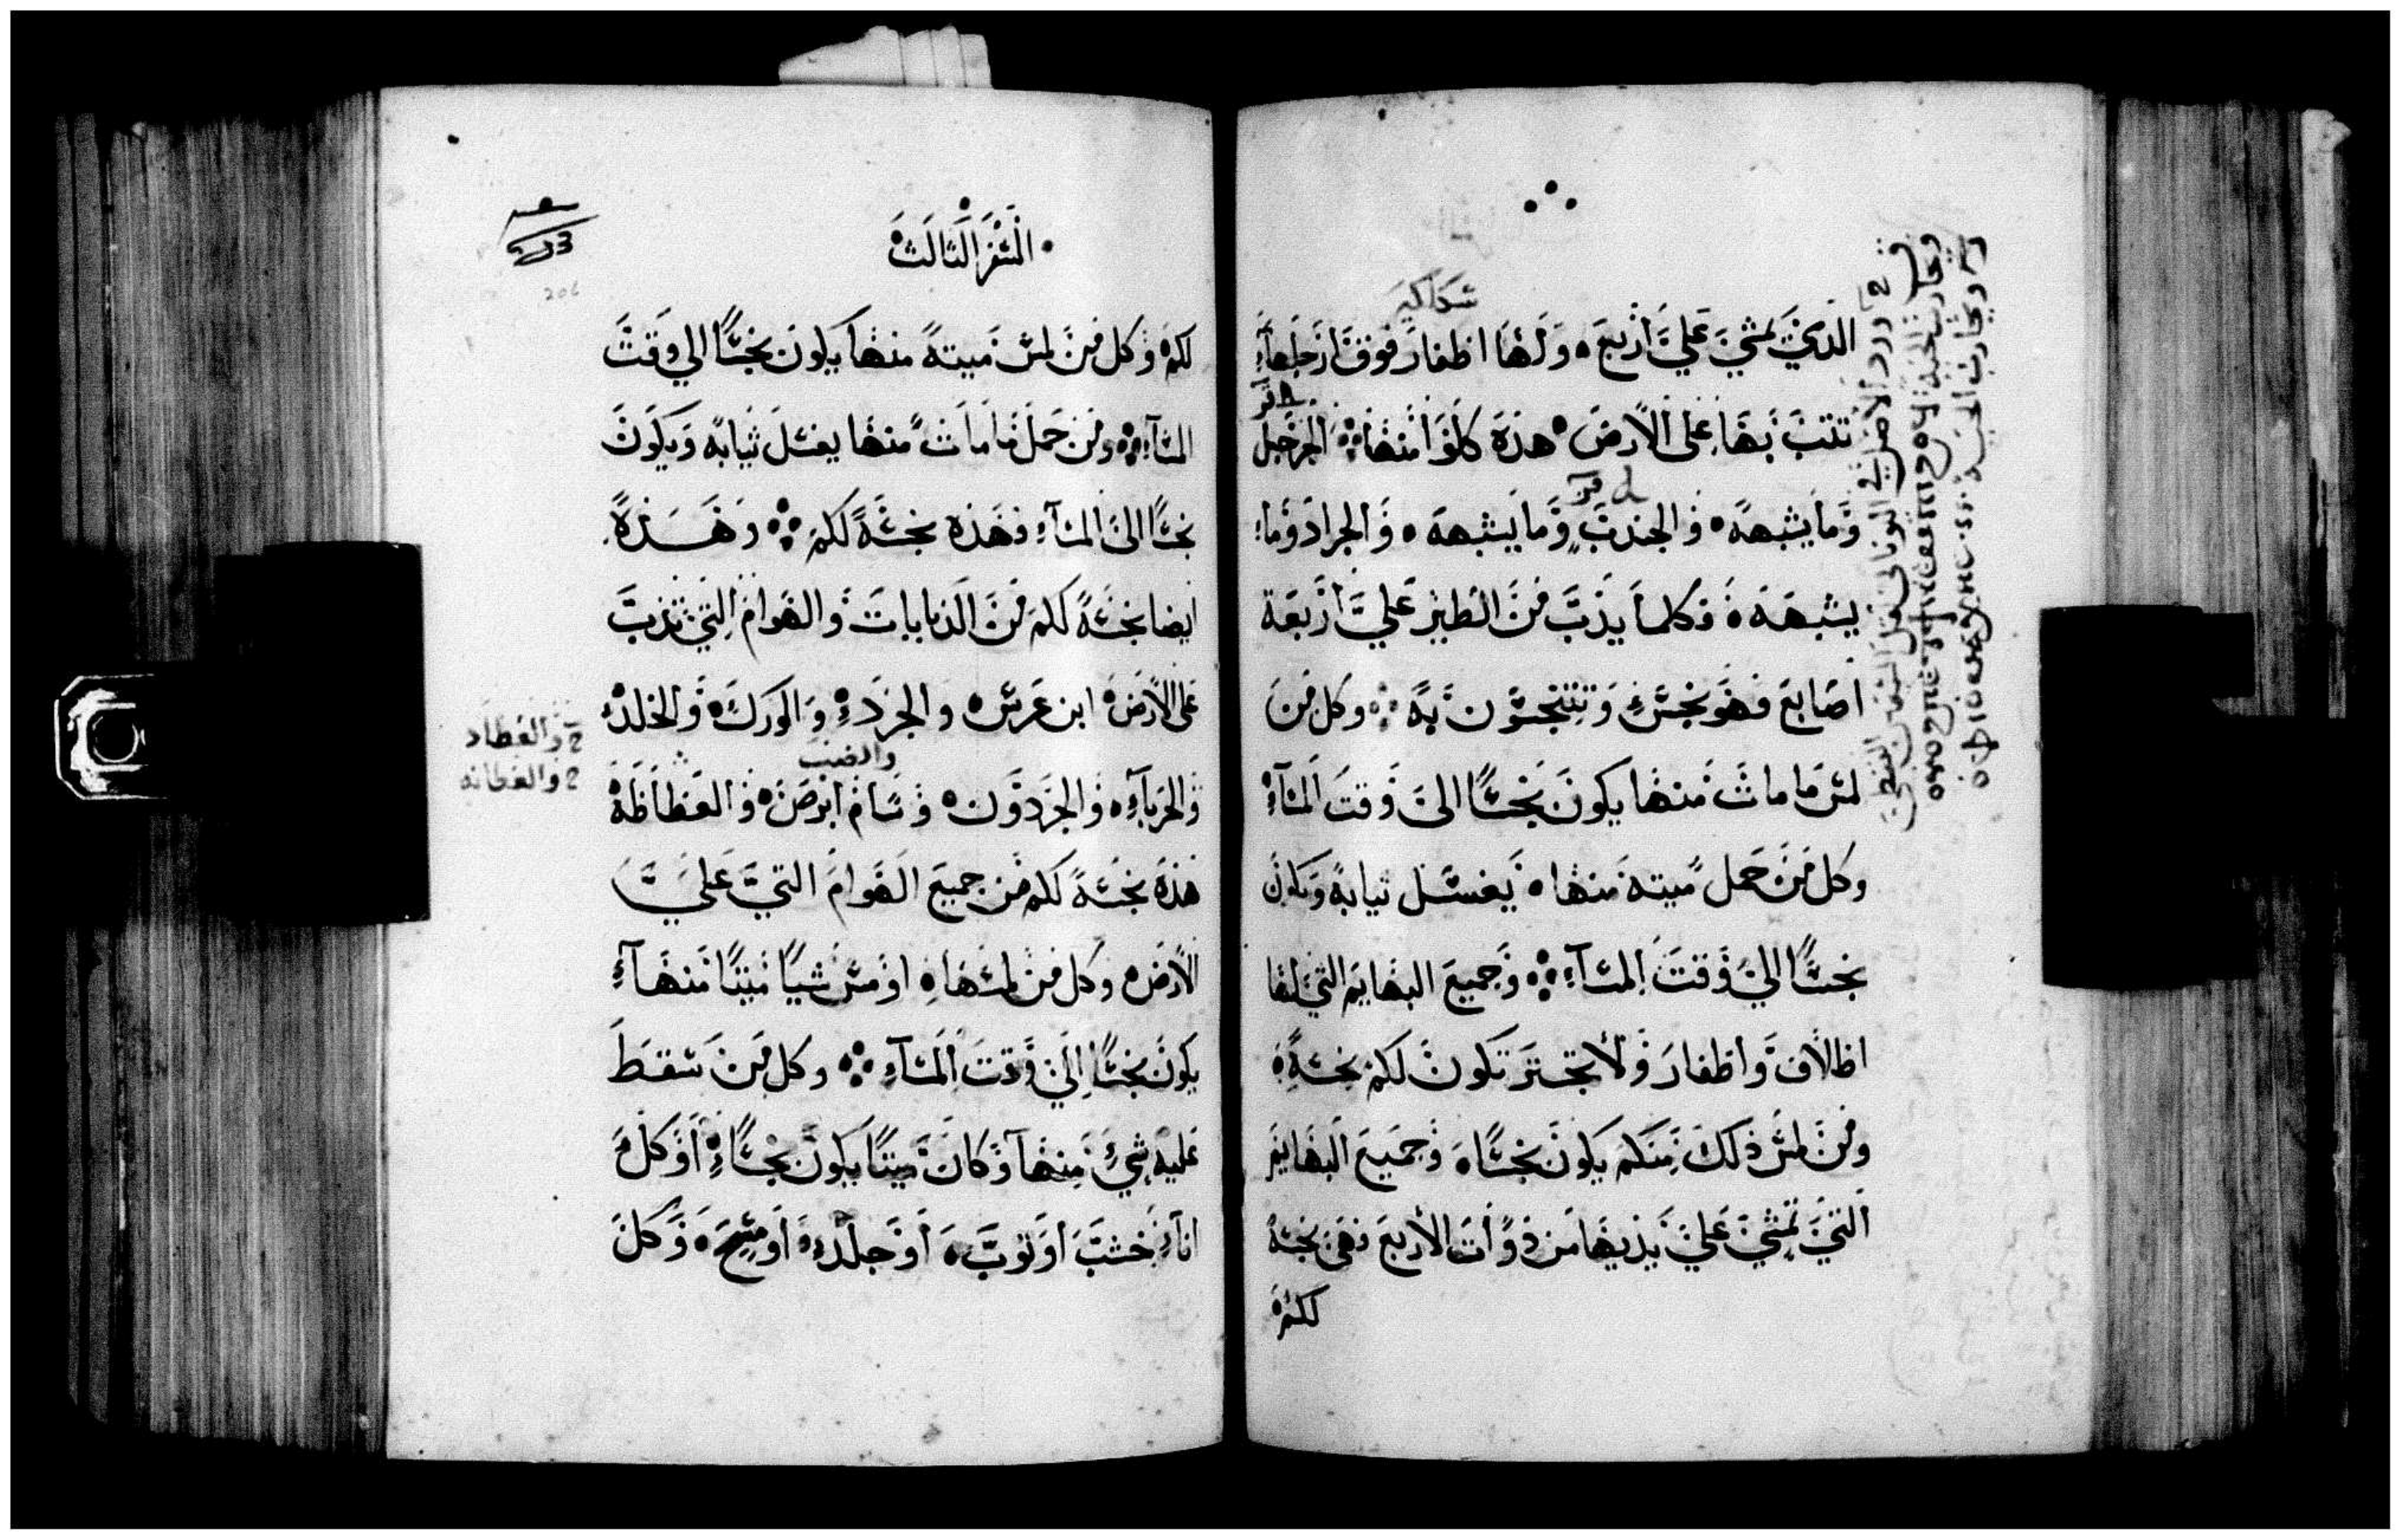 الذي يمشي علي اربع ولها اظفار فوق ارجلها
تتب بها على الارض هذه كلوا منها الجرجل
وما يشبهه والجندب وما يشبهه والجراد وما
يشبهه وكلما يدب من الطير علي اربعة
اصابع فهو نجس وتتنجسون به وكل من
لمس ما مات منها يكون نجسًا الى وقت المسآء
وكل من حمل ميته منها يغسل ثيابه ويكون
نجسًا الي وقت المسآء وجميع البهايم التي لها
اظلاف واظفار ولا تجتر تكون لكم نجسة
ومن لمس ذلك منكم يكون نجسًا وجميع البهايم
التي تمشي علي يديها من ذوات الاربع فهي نجسة
لكم
السفر الثالث
لكم وكل من لمس ميتة منها يكون نجسًا الي وقت
المسآء ومن حمل ما مات منها يغسل ثيابه ويكون
نجسًا الى المسآء فهذه نجسة لكم وهذه
ايضا نجسة لكم من الدبابات والهوام التي تدب
على الارض ابن عرس والجرد والورك والخلد
والضب
والحرباء والجردون وسام ابرص والعظاظة
هذه نجسة لكم من جميع الهوام التي علي
الارض وكل من لمسها او مس شيًا ميتًا منها
يكون نجسًا الي وقت المسآء وكل من سقط
عليه شي منها وكان ميتًا يكون نجسًا او كل
انآء خشب او ثوب او جلد او مسح وكل